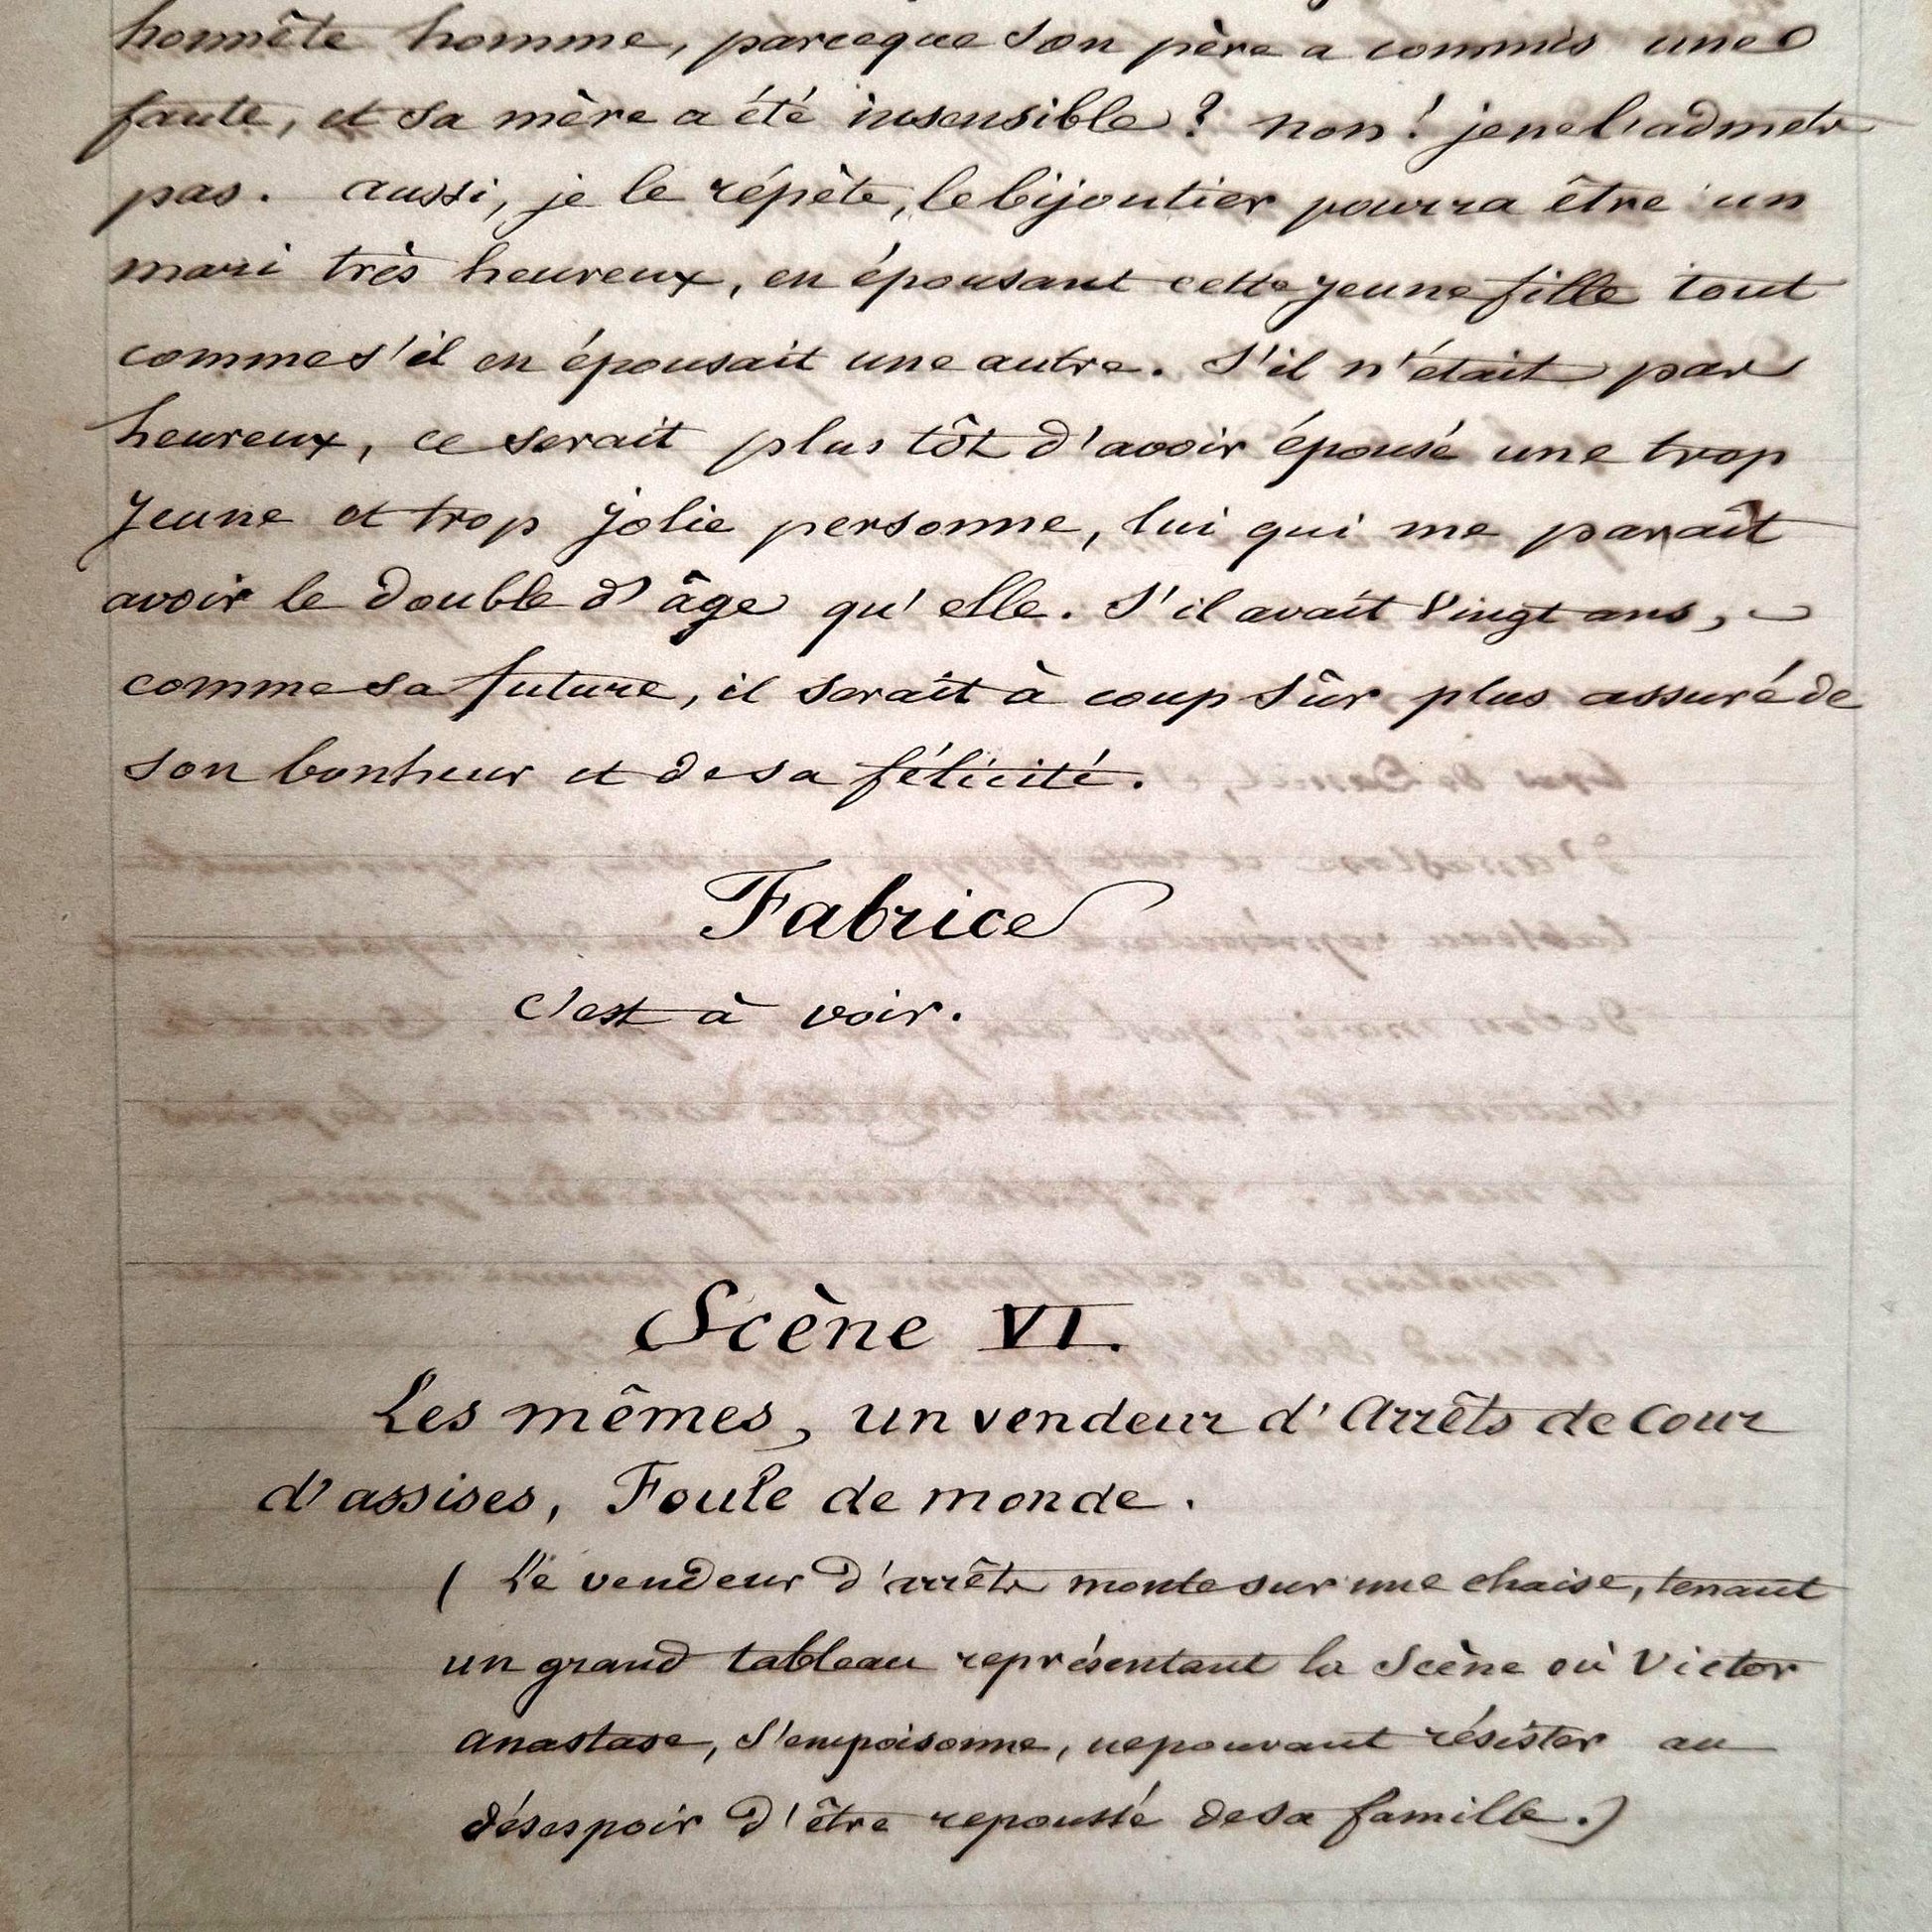 honnête homme, parceque son père a commis une
faute, et sa mère a été insensible? non! je ne l'admets
pas. aussi, je le répète, le bijoutier pourra être un
mari très heureux, en épousant cette jeune fille tout
comme s'il en épousait une autre. S'il n'était pas
heureux, ce serait plus tôt d'avoir épousé une trop
jeune et trop jolie personne, lui qui me paraît
avoir le double d'âge qu'elle. S'il avait vingt ans,
comme sa future, il serait à coup sûr plus assuré de
son bonheur et de sa félicité.
Fabrice
C'est à voir.
Scène VI.
Les mêmes, un vendeur d'Arrêts de Cour
d'assises, Foule de monde.
( Le vendeur d'arrêts monte sur une chaise, tenant
un grand tableau représentant la Scène où Victor
anastase, s'empoisonne, ne pouvant résister au
désespoir d'être repoussé de sa famille.)